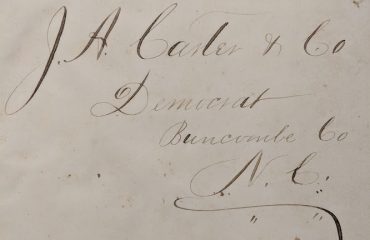 J. A. Carter & Co
Democrat
Buncombe Co
N. C.